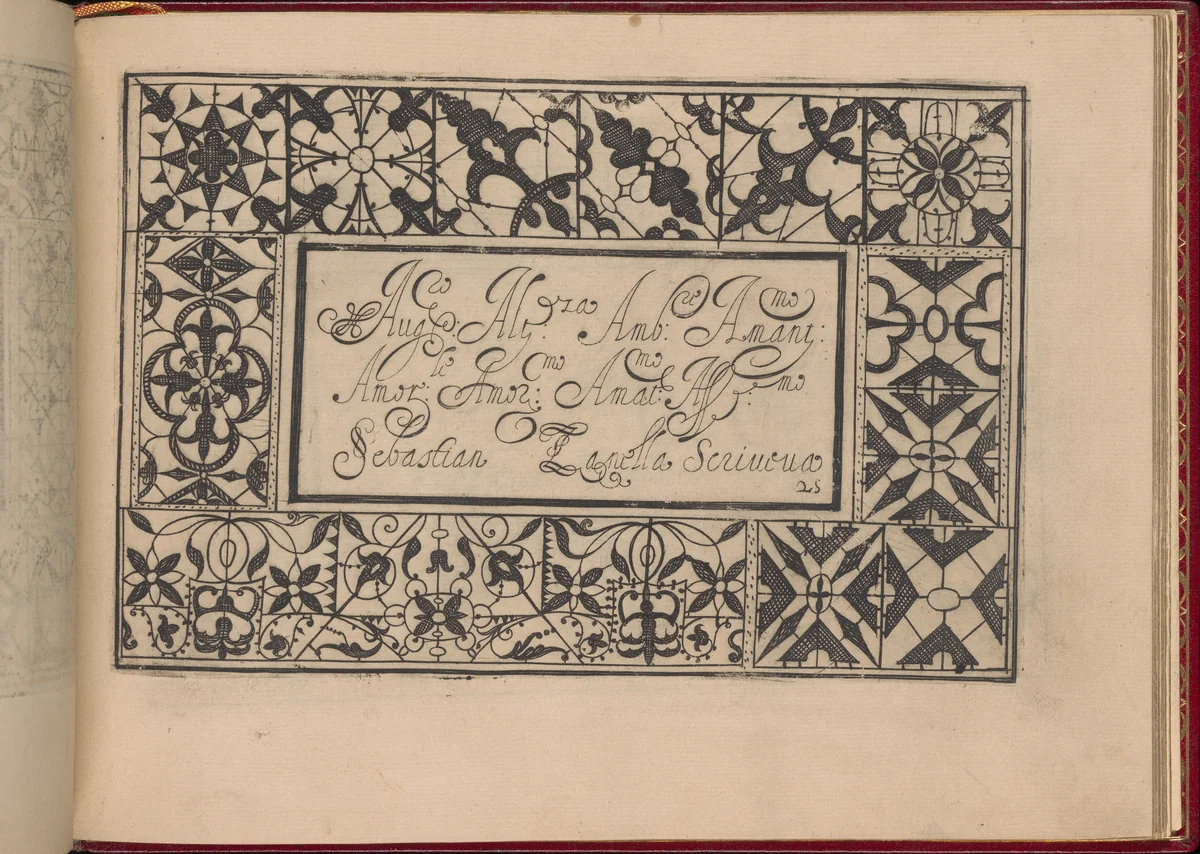 Aug:co Altezza Amb:re Amant:mo
Amor:le Amor:mo Amat:mo Aff:mo
Sebastian Zanella Scriveva
25